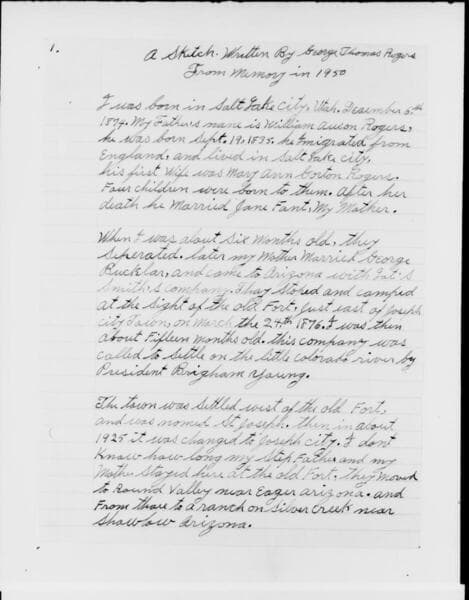 1.
A Sketch Written By George Thomas Rogers
From Memory in 1950
I was born in Salt Lake City, Utah. December 5th
1874. My Father's name is William Auson Rogers,
he was born Sept. 19, 1835. he Emigrated from
England, and lived in Salt Lake city.
his first Wife was Mary Ann Gorton Rogers.
Four children were born to them. After her
death he Married Jane Fant, My Mother.
When I was about Six Months old, they
Seperated. later my Mother Married George
Rucklar, and came to Arizona with Lot's
Smith's company. Thay Stored and camped
at the Sight of the old Fort, Just east of Joseph
city Town, on March the 24th 1876. I was then
about Fifteen Months old. this company was
called to Settle on the little colorado river by
President Brigham Young.
The town was Settled west of the old Fort,
and was nomed St Joseph. then in about
1925 it was changed to Joseph city. I dont
Know how long my Step Father and my
Mother Stayed here at the old Fort, they Moved
to Round Valley near Eager arizona. and
From thare to a ranch on Silver Creek near
Showlow Arizona.